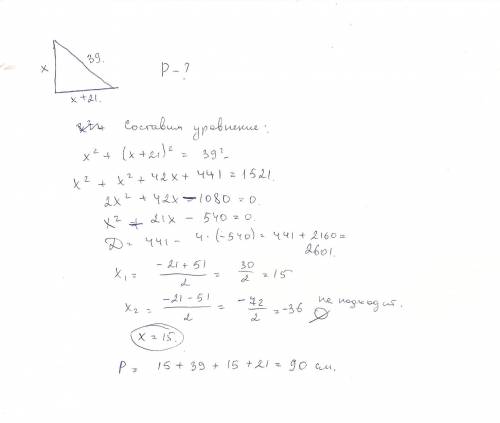 39.
x
P - ?
x + 21.
Составим уравнение:
x² + (x + 21)² = 39².
x² + x² + 42x + 441 = 1521.
2x² + 42x - 1080 = 0.
x² + 21x - 540 = 0.
D = 441 - 4 · (-540) = 441 + 2160 =
2601.
x₁ = (-21 + 51)/2 = 30/2 = 15
x₂ = (-21 - 51)/2 = -72/2 = -36 не подходит.
x = 15.
P = 15 + 39 + 15 + 21 = 90 см.